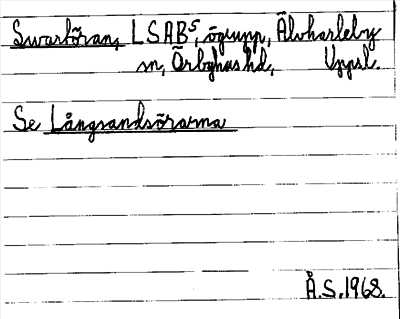 Svartöran, LSAB⁵, ögrupp, Älvkarleby
sn, Örbyhus hd, Uppsl.
Se Långsandsörarna
Å.S. 1968.